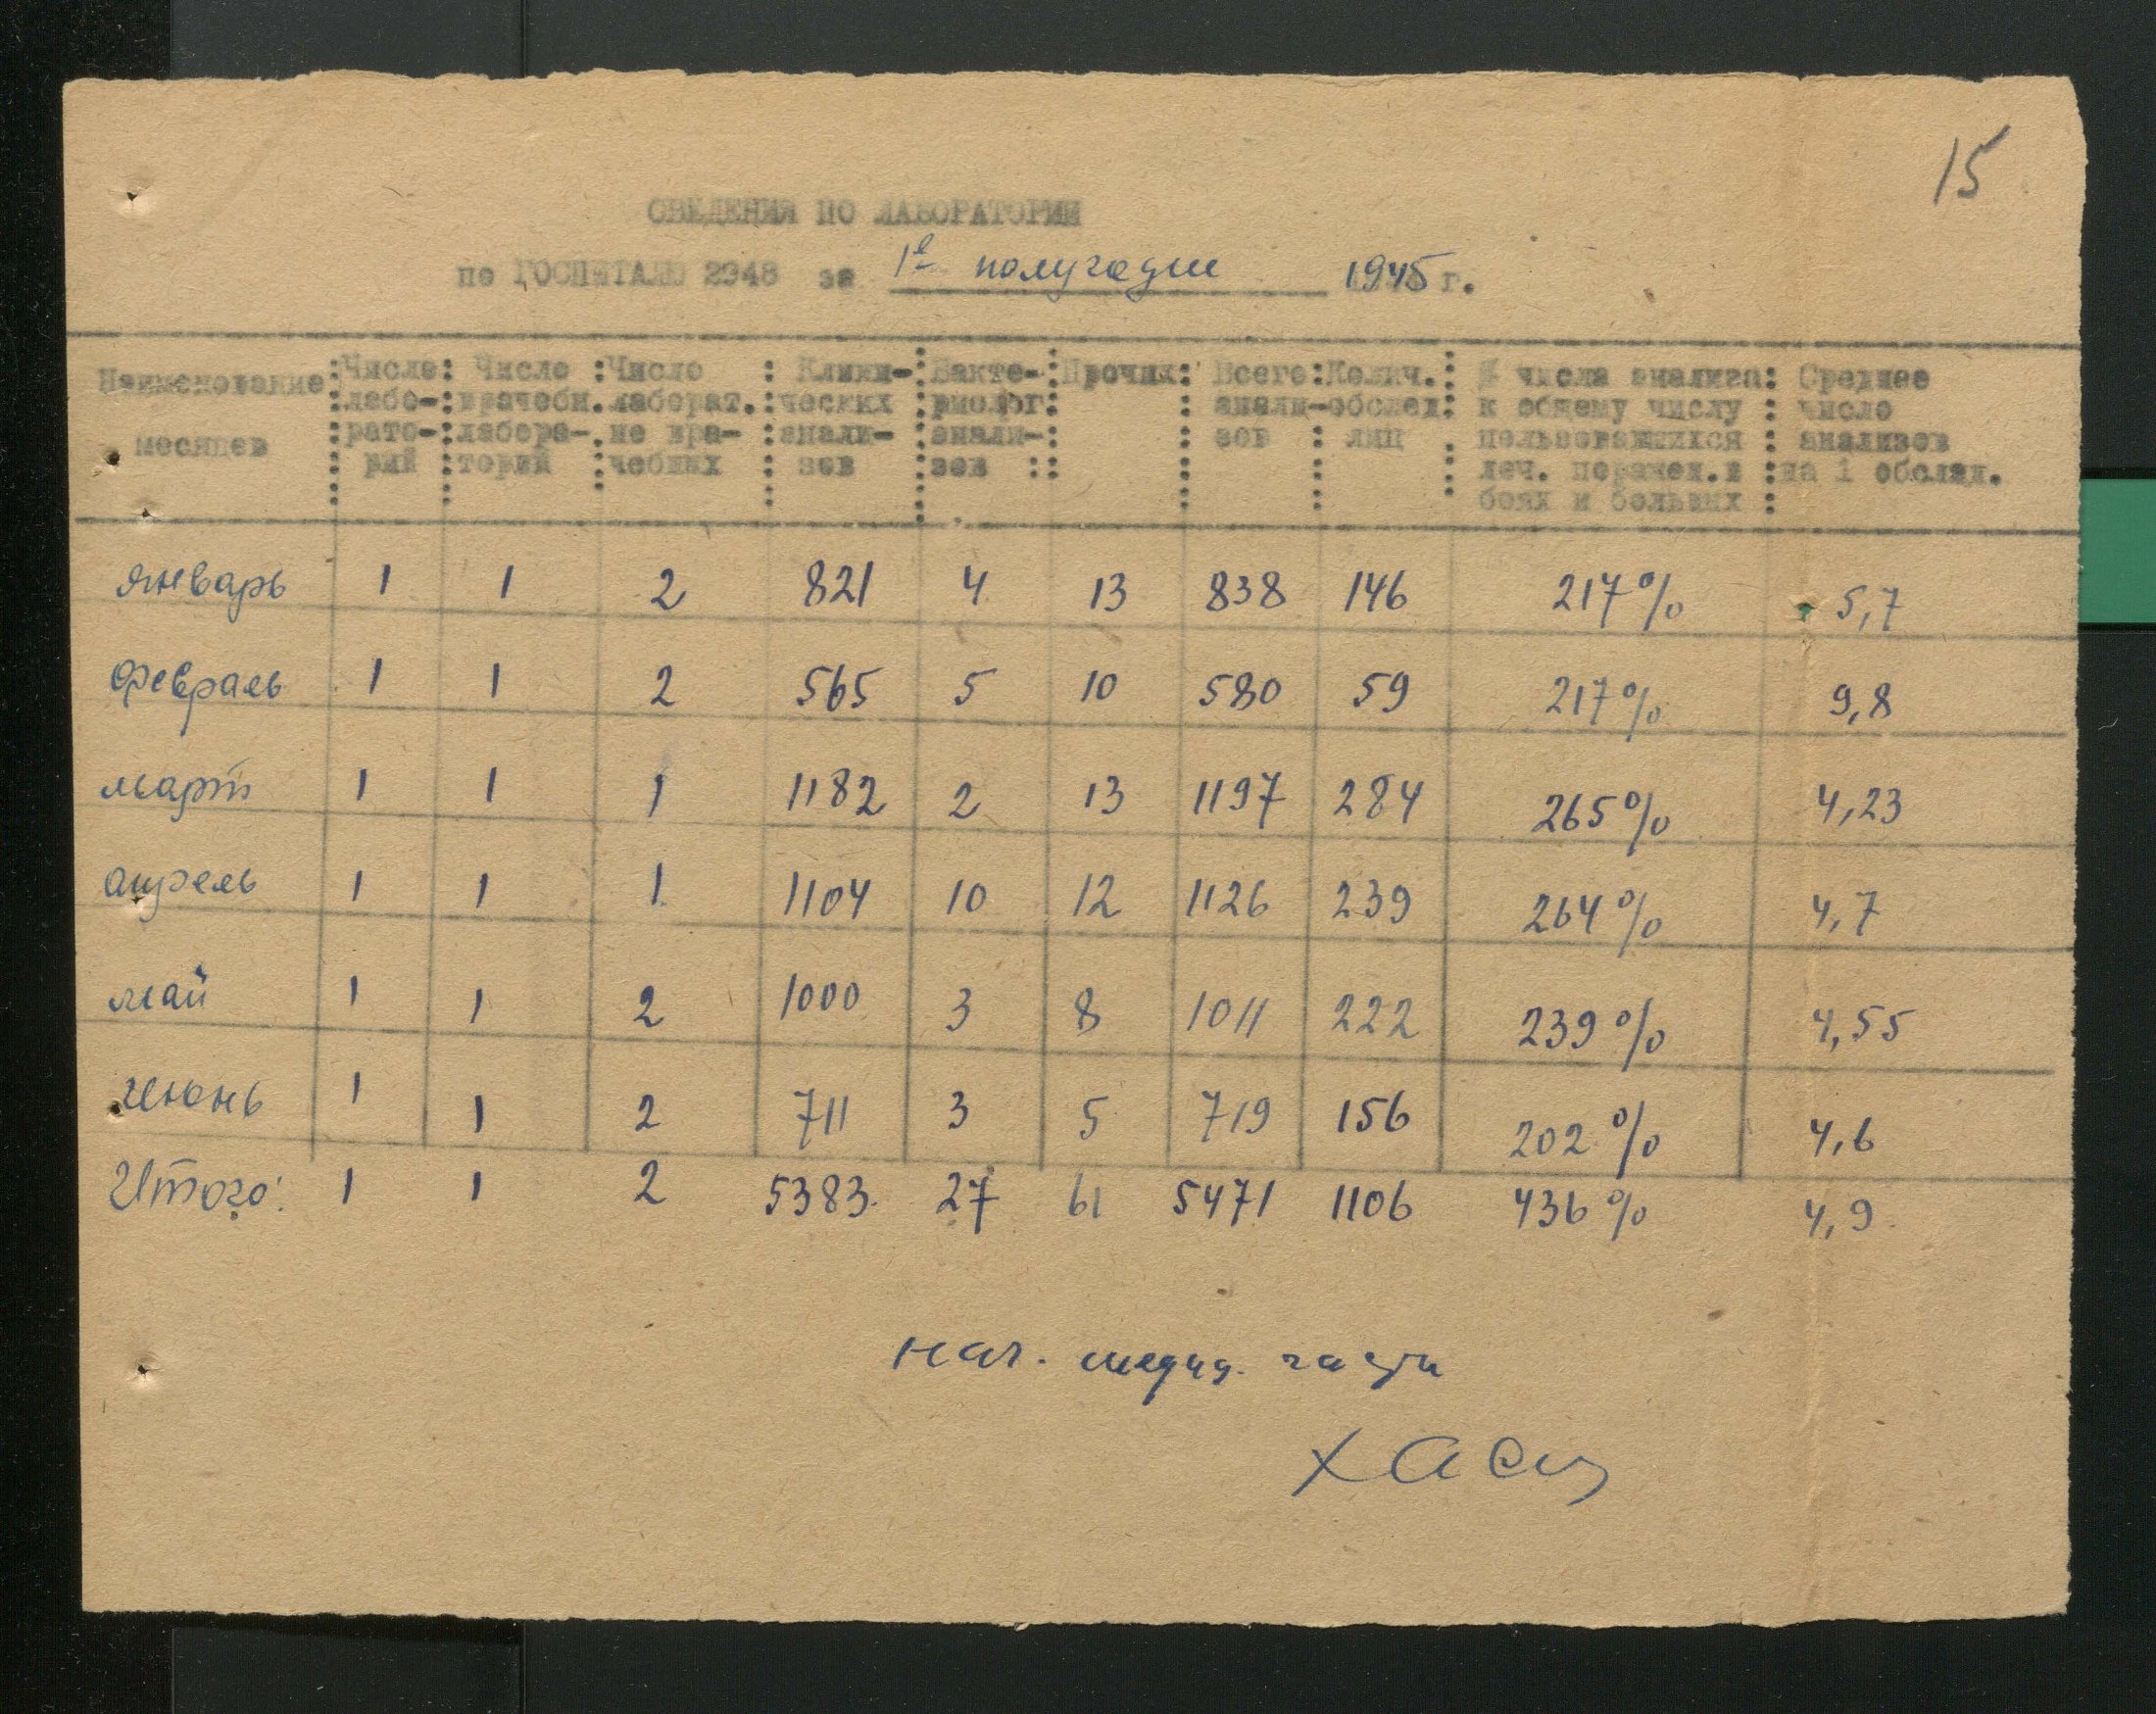 15
СВЕДЕНИЯ ПО ЛАБОРАТОРИИ
по ГОСПИТАЛЮ 2948 за 1е полугодие 1945 г.
Наименование месяцев : Число лабо-рато-рий : Число врачебн. лабора-торий : Число лаборат. не вра-чебных : Клини-ческих анали-зов : Бакте-риолог. анали-зов : Прочих : Всего анали-зов : Колич. обслед. лиц : % числа анализа к общему числу пользовавшихся леч. поражен. в боях и больных : Среднее число анализов на 1 обслед.
январь 1 1 2 821 4 13 838 146 217% 5,7
февраль 1 1 2 565 5 10 580 59 217% 9,8
март 1 1 1 1182 2 13 1197 284 265% 4,23
апрель 1 1 1 1104 10 12 1126 239 264% 4,7
май 1 1 2 1000 3 8 1011 222 239% 4,55
июнь 1 1 2 711 3 5 719 156 202% 4,6
Итого: 1 1 2 5383 27 61 5471 1106 436% 4,9
нач. медиц. части